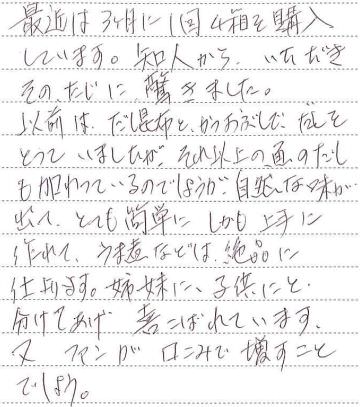 最近は3ヶ月に1回4箱を購入
しています。知人から、いただき
その、だしに、驚きました。
以前は、だし昆布と、かつおぶしで、だしを
とって いましたが、それ以上の 魚のだし
も加わっているのでしょうが、自然な味が
出て、とても簡単に しかも 上手に
作れて、うま煮などは、絶品に
仕上ります。姉妹に、子供にと
分けてあげ 喜こばれています、
又 ファンが 口こみで 増すこと
でしょう。